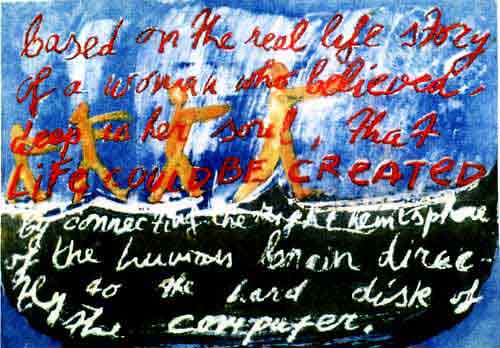 based on the real life story
of a woman who believed,
deep in her soul, that
LIFE COULD BE CREATED
by connecting the right hemisphere
of the human brain direc-
tly to the hard disk of
the computer.